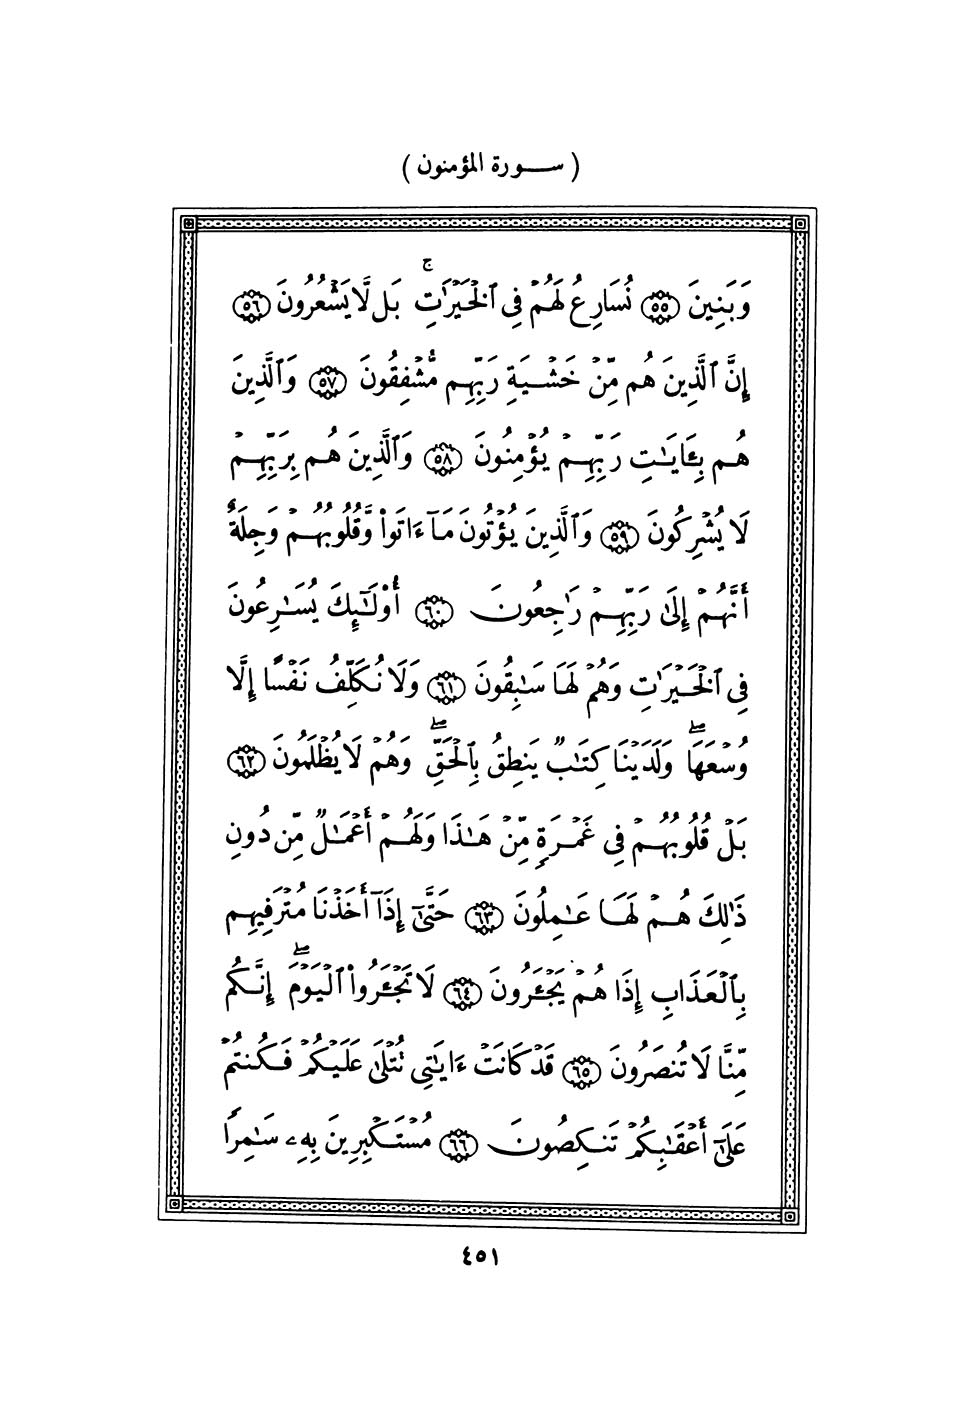 ( ســورة المؤمنون )
وَبَنِينَ ٥٥ نُسَارِعُ لَهُمْ فِى ٱلْخَيْرَٰتِ ۚ بَل لَّا يَشْعُرُونَ ٥٦
إِنَّ ٱلَّذِينَ هُم مِّنْ خَشْيَةِ رَبِّهِم مُّشْفِقُونَ ٥٧ وَٱلَّذِينَ
هُم بِـَٔايَـٰتِ رَبِّهِمْ يُؤْمِنُونَ ٥٨ وَٱلَّذِينَ هُم بِرَبِّهِمْ
لَا يُشْرِكُونَ ٥٩ وَٱلَّذِينَ يُؤْتُونَ مَآ ءَاتَوا۟ وَّقُلُوبُهُمْ وَجِلَةٌ
أَنَّهُمْ إِلَىٰ رَبِّهِمْ رَٰجِعُونَ ٦٠ أُو۟لَـٰٓئِكَ يُسَـٰرِعُونَ
فِى ٱلْخَيْرَٰتِ وَهُمْ لَهَا سَـٰبِقُونَ ٦١ وَلَا نُكَلِّفُ نَفْسًا إِلَّا
وُسْعَهَا ۖ وَلَدَيْنَا كِتَـٰبٌ يَنطِقُ بِٱلْحَقِّ ۖ وَهُمْ لَا يُظْلَمُونَ ٦٢
بَلْ قُلُوبُهُمْ فِى غَمْرَةٍ مِّنْ هَـٰذَا وَلَهُمْ أَعْمَـٰلٌ مِّن دُونِ
ذَٰلِكَ هُمْ لَهَا عَـٰمِلُونَ ٦٣ حَتَّىٰٓ إِذَآ أَخَذْنَا مُتْرَفِيهِم
بِٱلْعَذَابِ إِذَا هُمْ يَجْـَٔرُونَ ٦٤ لَا تَجْـَٔرُوا۟ ٱلْيَوْمَ ۖ إِنَّكُم
مِّنَّا لَا تُنصَرُونَ ٦٥ قَدْ كَانَتْ ءَايَـٰتِى تُتْلَىٰ عَلَيْكُمْ فَكُنتُمْ
عَلَىٰٓ أَعْقَـٰبِكُمْ تَنكِصُونَ ٦٦ مُسْتَكْبِرِينَ بِهِۦ سَـٰمِرًا
٤٥١